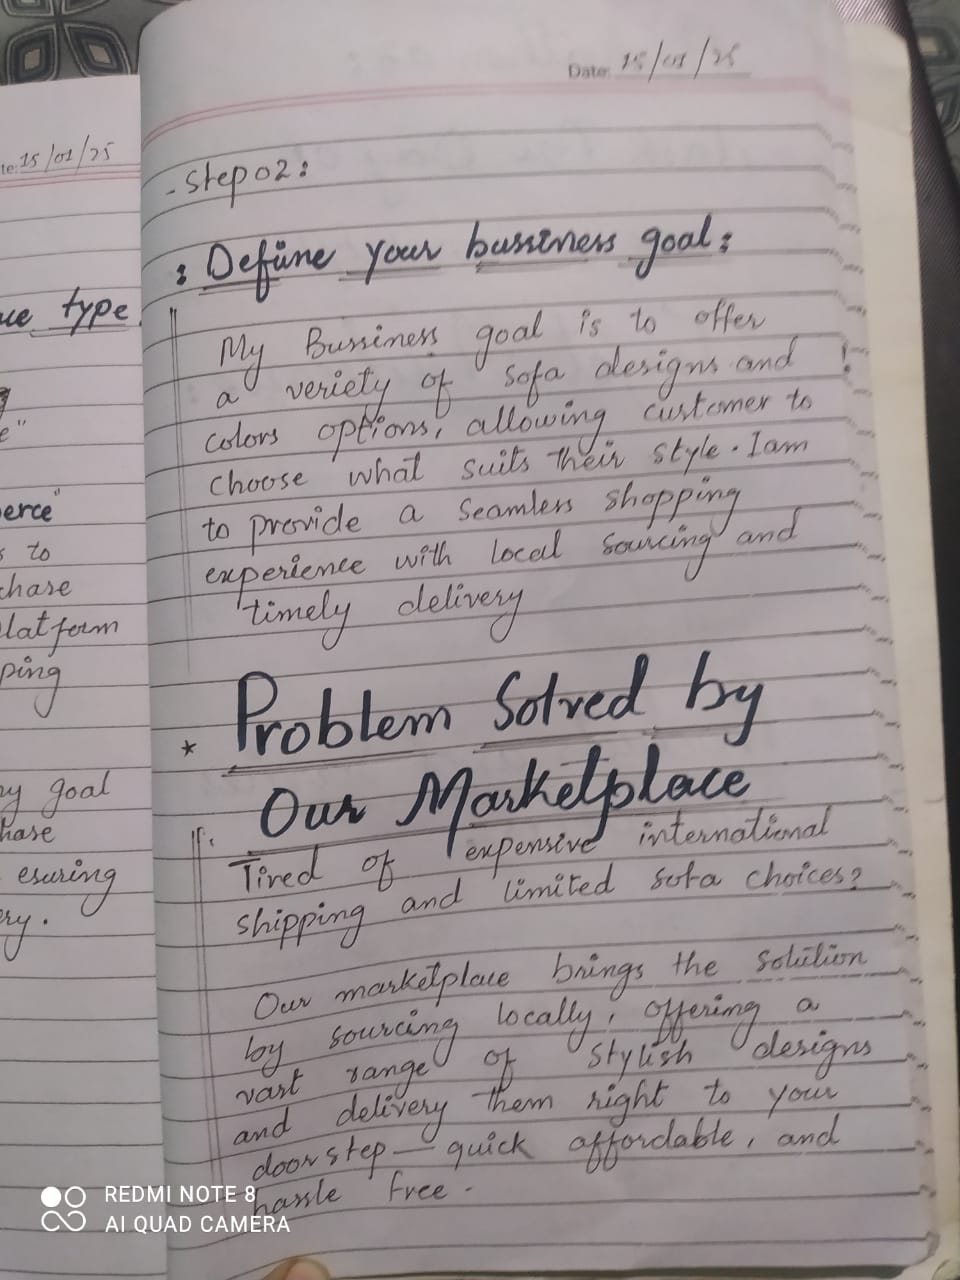 te: 15/01/25
ue type
e"
erce"
s to
chase
latform
ping
ny goal
hase
esuring
ry.
Date: 15/01/25
- Step 02:
: Define your bussiness goal:
My Bussiness goal is to offer
a veriety of sofa designs and
colors options, allowing customer to
choose what suits their style. I am
to provide a seamless shopping
experience with local sourcing and
timely delivery
* Problem Solved by
Our Marketplace
Tired of expensive international
shipping and limited sofa choices?
Our marketplace brings the solution
by sourcing locally, offering a
vast range of stylish designs
and delivery them right to your
doorstep — quick affordable, and
hassle free.
REDMI NOTE 8
AI QUAD CAMERA